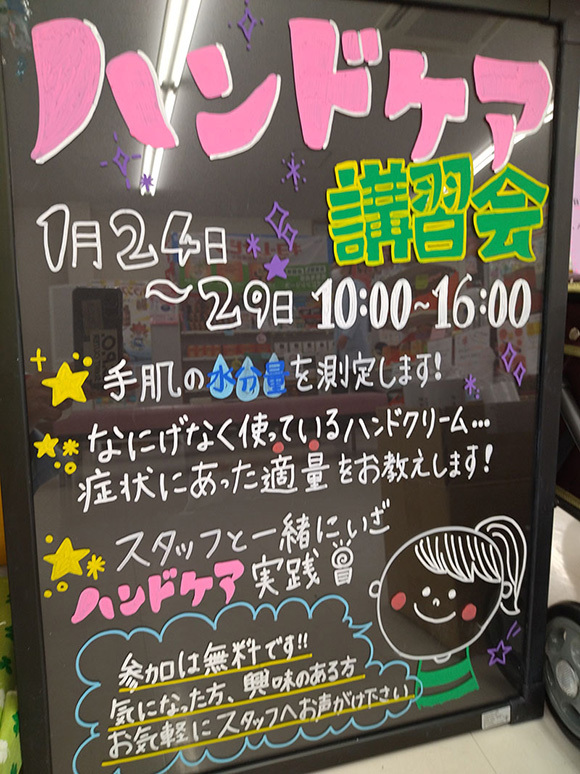 ハンドケア
講習会
1月24日
～29日 10:00～16:00
手肌の水分量を測定します!
なにげなく使っているハンドクリーム…
症状にあった適量をお教えします!
スタッフと一緒にいざ
ハンドケア実践
参加は無料です!!
気になった方、興味のある方
お気軽にスタッフへお声がけ下さい